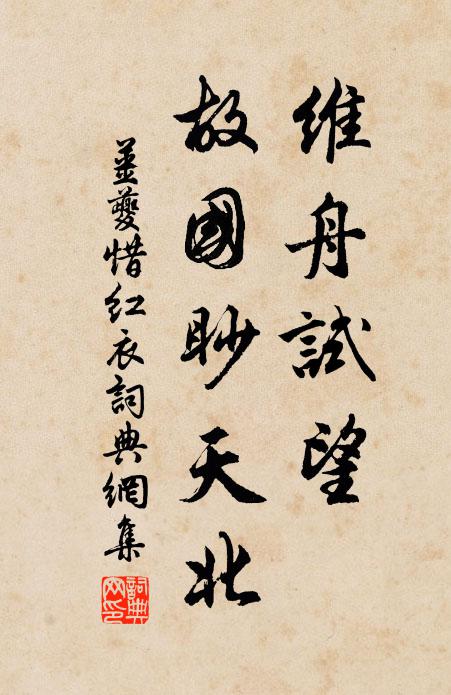 維舟試望
故國眇天北
姜夔惜红衣詞典網集
詞典网印